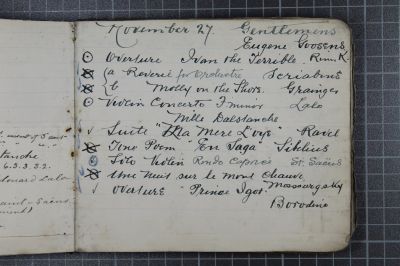 November 27. Gentlemens
Eugene Goosens
Overture Ivan the Terrible. Rims. K.
a Reverie for Orchestre Scriabine
b Molly on the Shore. Grainger
Violin Concerto F minor Lalo
Mlle Dalstanche
Suite "Ma Mere L'oye" Ravel
Tone Poem "En Saga" Siblius
Solo Violin Rondo Capric St. Saëns
Une nuit sur le mont chauve
Mossorgsky
Overture "Prince Igor.
Borodine
6.3.3.2.
douard Lalo